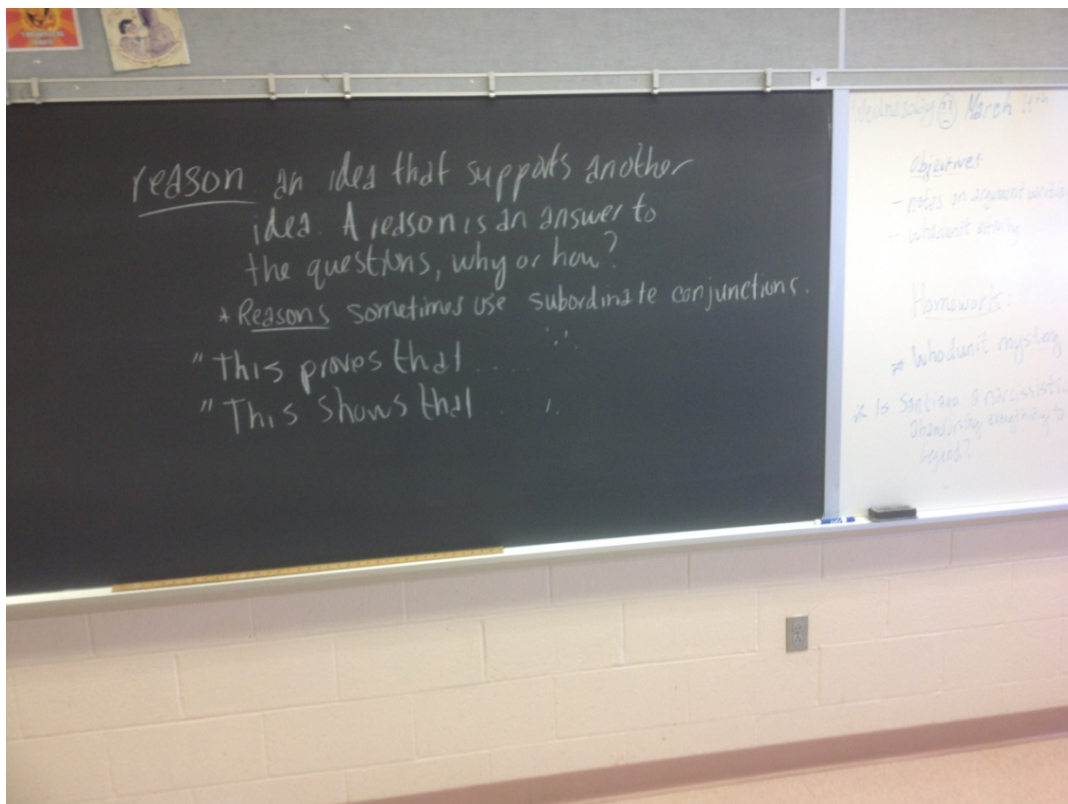 reason an idea that supports another
idea. A reason is an answer to
the questions, why or how?
* Reasons sometimes use subordinate conjunctions.
"This proves that ....
"This shows that ..
Wednesday March
Objectives
- notes on argument
- whodunit
Homework:
* Whodunit mystery
* Is Santiago a narcissistic
abandoning everything to
legend?